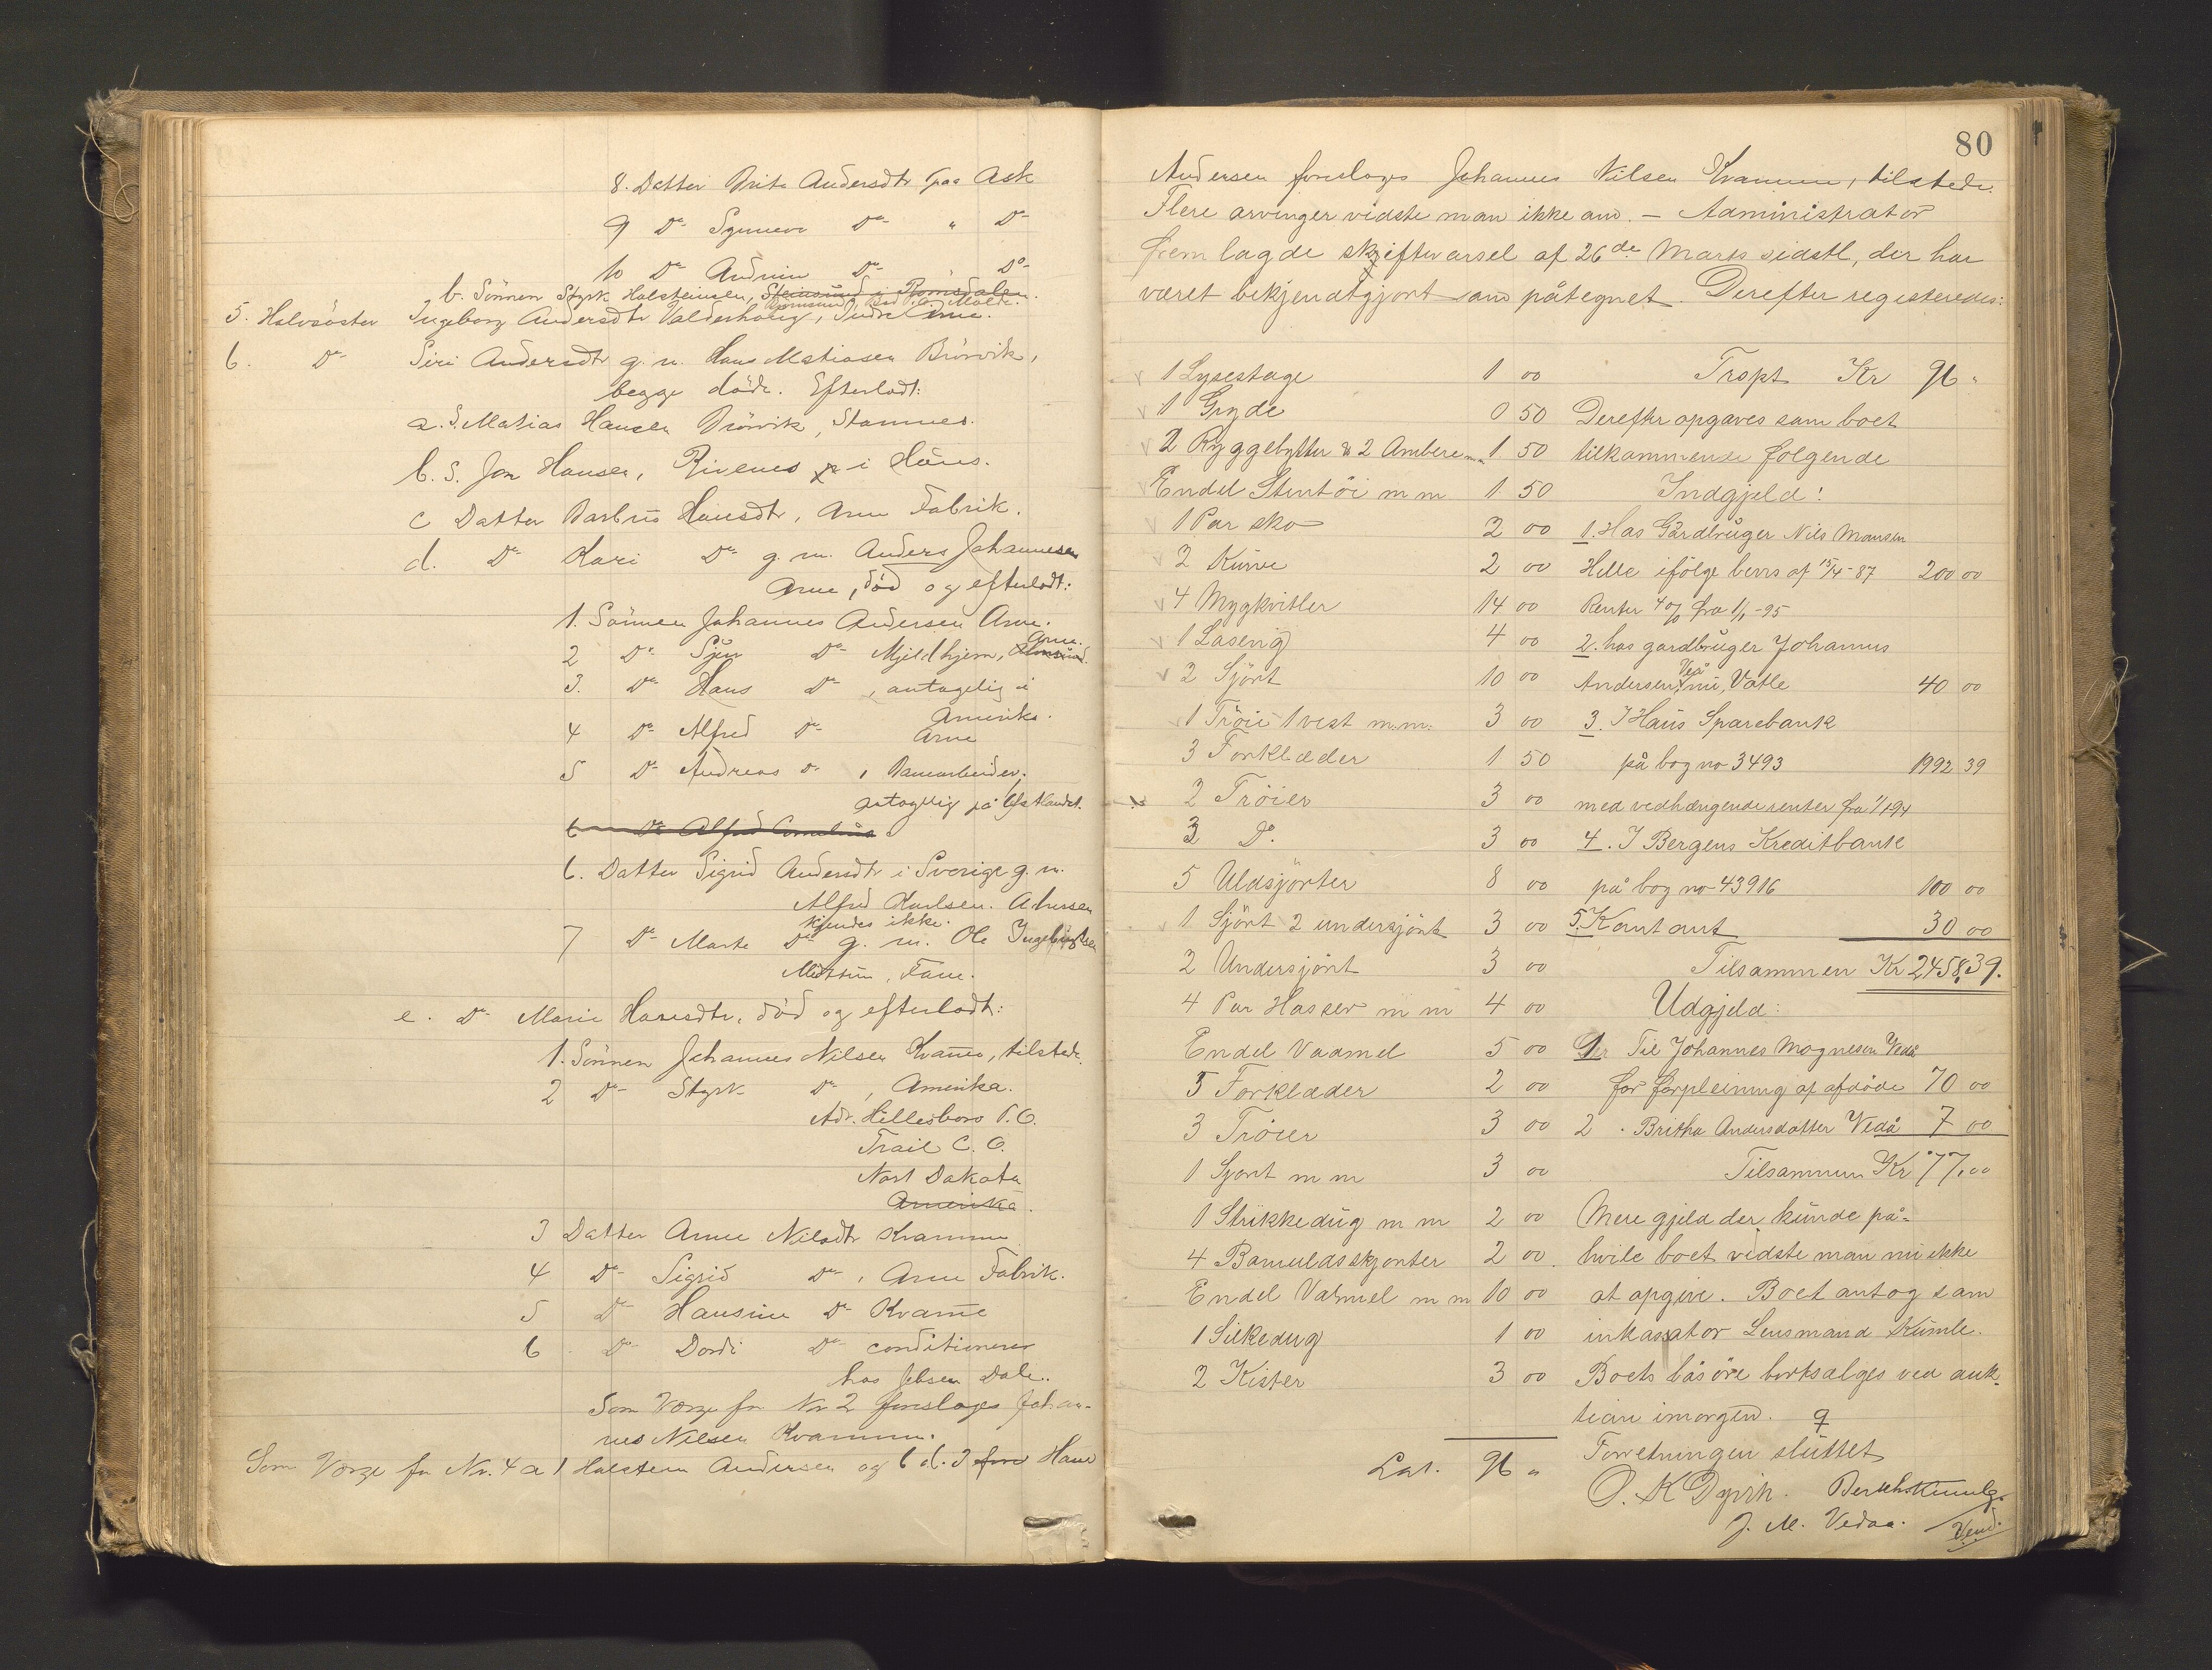 8. Datter Brita Andersdtr paa Ask
9 Do Synneva Do " Do
10 Do Do Do
b. Sönnen Styrk Holsteinsen, Steinsund i Romsdalen.
P.O. Molde.
5. Halvsöster Ingeborg Andersdtr Valderhaug, Indre Arne.
6. Do Siri Andersdtr g. m. Hans Matiasen Brörvik,
begge döde. Efterladt:
a. S. Matias Hansen Brörvik, Stamnes.
b. S. Jon Hansen, Rivenes i Haus.
c Datter Barbro Hansdtr, Arne Fabrik.
d. Do Kari Do g. m. Anders Johannesen
Arne, död og efterladt:
1. Sönnen Johannes Andersen Arne.
2 Do Sjur Do Mjeldhjem, Arne.
3. Do Hans Do, antagelig i
Amerika.
4 Do Alfred Do Arne
5 Do Andreas Do, Banearbeider,
antagelig på Østlandet.
6 Do Alfred Cornelius
6. Datter Sigrid Andersdtr i Sverige g. m.
Alfred Karlsen. Adressen
kjendes ikke.
7 Do Marte Do g. m. Ole Ingebrigtsen
Midttun, Fane.
e. Do Marie Hansdtr, död og efterladt:
1. Sönnen Johannes Nilsen Kvamme, tilstede.
2 Do Styrk Do, Amerika.
Adr. Hillesboro P.O.
Trail C. O.
Nort Dakota
Amerika.
3 Datter Anne Nilsdtr Kvamme
4 Do Sigrid Do, Arne Fabrik.
5 Do Hansine Do Kvamme
6 Do Dordi Do conditionerer
hos Jebsen Dale..
Som Værge for Nr 2 foreslages Johan-
nes Nilsen Kvamme.
Som Værge for Nr. 4 a 1 Holstein Andersen og 6 d. 3 Hans
80
Andersen foreslages Johannes Nilsen Kvamme, tilstede.
Flere arvinger vidste man ikke om. – Administrator
fremlagde skiftevarsel af 26de Marts sidstl, der har
været bekjendtgjort som påtegnet. Derefter registeredes:
1 Lysestage 1 00
1 Gryde 0 50
2 Ryggebytter & 2 Ambere 1 50
Endel Stentöi m m 1 50
1 Par sko 2 00
2 Kurve 2 00
4 Mygkvitler 14 00
1 Laseng 4 00
2 Sjört 10 00
1 Tröie 1 vest m.m. 3 00
3 Forklæder 1 50
2 Tröier 3 00
3 Do. 3 00
5 Uldsjörter 8 00
1 Sjört 2 undersjört 3 00
2 Undersjört 3 00
4 Par Hasser m m 4 00
Endel Vadmel 5 00
5 Forklæder 2 00
3 Tröier 3 00
1 Sjort m m 3 00
1 Strikkedug m m 2 00
4 Bamuldsskjorter 2 00
Endel Vadmel m m 10 00
1 Silkedug 1 00
2 Kister 3 00
Lat. 96 "
Trspt Kr 96 "
Derefter opgaves som boet
tilkommende følgende
Indgjeld:
1. Hos Gårdbruger Nils Monsen
Helle ifölge bevis af 15/4-87 200 00
Renter 4% fra 1/1-95
2. hos gardbruger Johannes
Andersen Veå nu, Vatle 40 00
3. I Haus Sparebank
på bog no 3493 1992 39
med vedhængende renter fra 1/1 94
4. I Bergens Kreditbank
på bog no 43916 100 00
5. Kontant 30 00
Tilsammen Kr 2458,39.
Udgjeld:
1 Til Johannes Mognesen Vedå
for forpleining af afdöde 70 00
2 . Britha Andersdatter Vedå 7 00
Tilsammen Kr 77,00
Mere gjeld der kunde på-
hvile boet vidste man nu ikke
at opgive. Boet antog som
inkassator Lensmand Kumle.
Boets lösöre bortsælges ved auk-
tion imorgen.
Forretningen sluttet
O. K Dyvik. Kumle.
J. M. Vedaa. Vend.